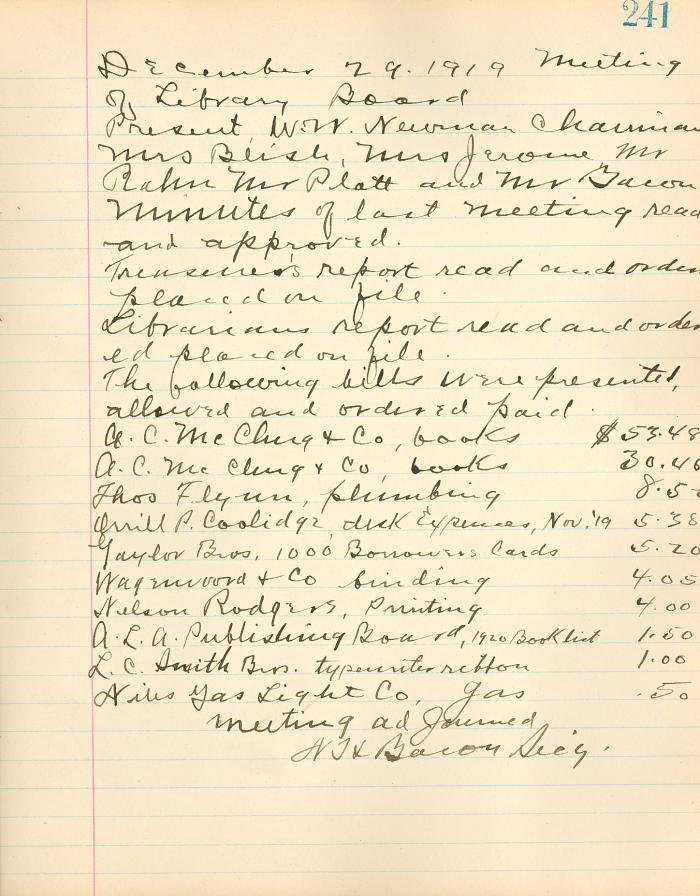 241
December 29. 1919 Meeting
of Library Board
Present, W.W. Newman Chairman
Mrs Blish, Mrs Jerome, Mr
Rahn Mr Platt and Mr Bacon
Minutes of last meeting read
and approved.
Treasurer's report read and order
placed on file.
Librarians report read and order
ed placed on file.
The following bills were presented,
allowed and ordered paid.
A. C. McClurg & Co, books $53.48
A. C. McClurg & Co, books 30.46
Thos Flynn, plumbing 8.5
Orrill P. Coolidge, desk Expenses, Nov. '19 5.38
Gaylor Bros. 1000 Borrowers Cards 5.20
Wagenvoord & Co binding 4.05
Nelson Rodgers, Printing 4.00
A. L. A. Publishing Board, 1920 Booklist 1.50
L. C. Smith Bros. typewriter ribbon 1.00
Niles Gas Light Co, Gas .50
Meeting adjourned
Bacon Secy.